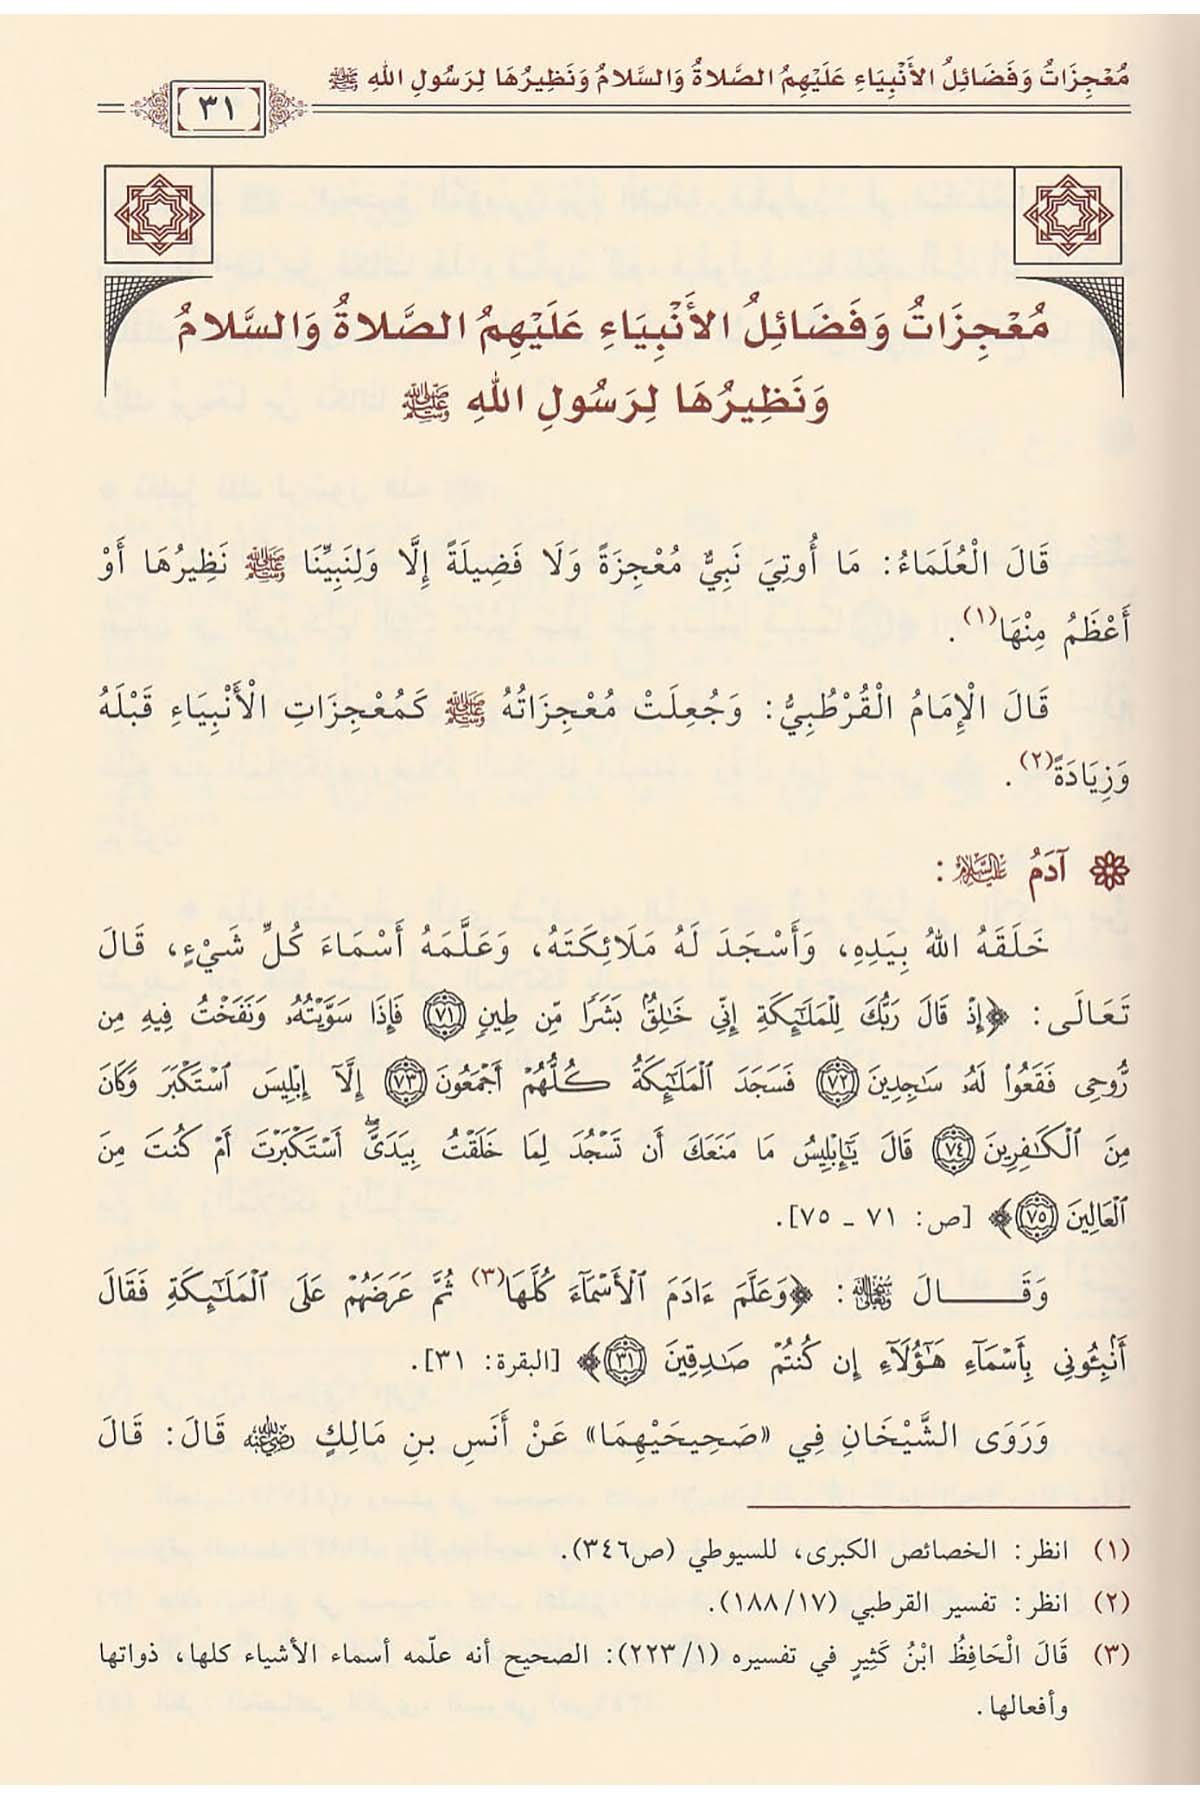 مُعْجِزَاتُ وَفَضَائِلُ الأَنْبِيَاءِ عَلَيْهِمُ الصَّلاةُ وَالسَّلامُ وَنَظِيرُهَا لِرَسُولِ اللهِ ﷺ
٣١
مُعْجِزَاتُ وَفَضَائِلُ الأَنْبِيَاءِ عَلَيْهِمُ الصَّلاةُ وَالسَّلامُ
وَنَظِيرُهَا لِرَسُولِ اللهِ ﷺ
قَالَ الْعُلَمَاءُ: مَا أُوتِيَ نَبِيٌّ مُعْجِزَةً وَلَا فَضِيلَةً إِلَّا وَلِنَبِيِّنَا ﷺ نَظِيرُهَا أَوْ
أَعْظَمُ مِنْهَا(١).
قَالَ الْإِمَامُ الْقُرْطُبِيُّ: وَجُعِلَتْ مُعْجِزَاتُهُ ﷺ كَمُعْجِزَاتِ الْأَنْبِيَاءِ قَبْلَهُ
وَزِيَادَةً(٢).
آدَمُ عَلَيْهِ السَّلَامُ:
خَلَقَهُ اللهُ بِيَدِهِ، وَأَسْجَدَ لَهُ مَلَائِكَتَهُ، وَعَلَّمَهُ أَسْمَاءَ كُلِّ شَيْءٍ، قَالَ
تَعَالَى: ﴿إِذْ قَالَ رَبُّكَ لِلْمَلَٰٓئِكَةِ إِنِّي خَٰلِقُۢ بَشَرٗا مِّن طِينٖ ٧١ فَإِذَا سَوَّيْتُهُۥ وَنَفَخْتُ فِيهِ مِن
رُّوحِي فَقَعُوا۟ لَهُۥ سَٰجِدِينَ ٧٢ فَسَجَدَ ٱلْمَلَٰٓئِكَةُ كُلُّهُمْ أَجْمَعُونَ ٧٣ إِلَّآ إِبْلِيسَ ٱسْتَكْبَرَ وَكَانَ
مِنَ ٱلْكَٰفِرِينَ ٧٤ قَالَ يَٰٓإِبْلِيسُ مَا مَنَعَكَ أَن تَسْجُدَ لِمَا خَلَقْتُ بِيَدَيَّۖ أَسْتَكْبَرْتَ أَمْ كُنتَ مِنَ
ٱلْعَالِينَ ٧٥﴾ [ص: ٧١ ـ ٧٥].
وَقَـــــالَ سُبْحَانَهُ وَتَعَالَى: ﴿وَعَلَّمَ ءَادَمَ ٱلْأَسْمَآءَ كُلَّهَا(٣) ثُمَّ عَرَضَهُمْ عَلَى ٱلْمَلَٰٓئِكَةِ فَقَالَ
أَنۢبِـُٔونِي بِأَسْمَآءِ هَٰٓؤُلَآءِ إِن كُنتُمْ صَٰدِقِينَ ٣١﴾ [البقرة: ٣١].
وَرَوَى الشَّيْخَانِ فِي «صَحِيحَيْهِمَا» عَنْ أَنَسِ بنِ مَالِكٍ رَضِيَ اللهُ عَنْهُ قَالَ: قَالَ
(١) انظر: الخصائص الكبرى، للسيوطي (ص٣٤٦).
(٢) انظر: تفسير القرطبي (١٨٨/١٧).
(٣) قَالَ الْحَافِظُ ابْنُ كَثِيرٍ في تفسيره (٢٢٣/١): الصحيح أنه علّمه أسماء الأشياء كلها، ذواتها
وأفعالها.